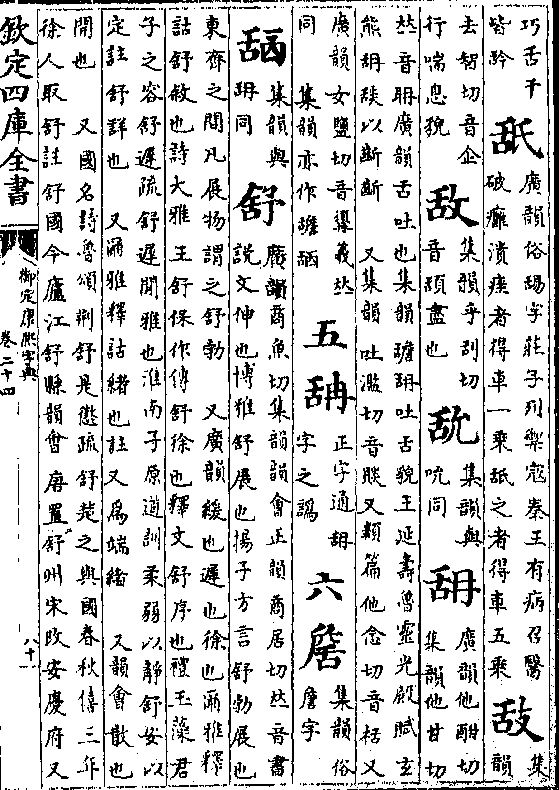 巧舌干
皆聆
舐
廣韻俗䑛字莊子列禦寇秦王有病召醫
破癰潰痤者得車一乗舐之者得車五乗
集
韻
去智切音企
行喘息貌
敌
集韻乎刮切
音頢盡也
集韻與
吮同
舑
廣韻他酣切
集韻他甘切
𠀤音聃廣韻舌吐也集韻舑吐舌貌王延壽魯靈光殿賦玄
熊舑以齗齗 又集韻吐濫切音又類篇他念切音又
廣韻女鹽切音義𠀤
同 集韻亦作
五
正字通舑
字之譌
六
集韻俗
詹字
集韻與
舑同
舒
廣韻商魚切集韻韻會正韻商居切𠀤音書
說文伸也博雅舒展也揚子方言舒勃展也
東齊之間凡展物謂之舒勃 又廣韻緩也遲也徐也爾雅釋
詁舒敘也詩大雅王舒保作傳舒徐也釋文舒序也禮玉藻君
子之容舒遲疏舒遲閒雅也淮南子原道訓柔弱以靜舒安以
定註舒詳也 又爾雅釋詁緒也註又爲端緒 又韻會散也
開也 又國名詩魯頌荆舒是懲疏舒楚之與國春秋僖三年
徐人取舒註舒國今廬江舒縣韻會唐置舒州宋改安慶府又
欽定四庫全書
御定康熙字典
卷二十四
八十一